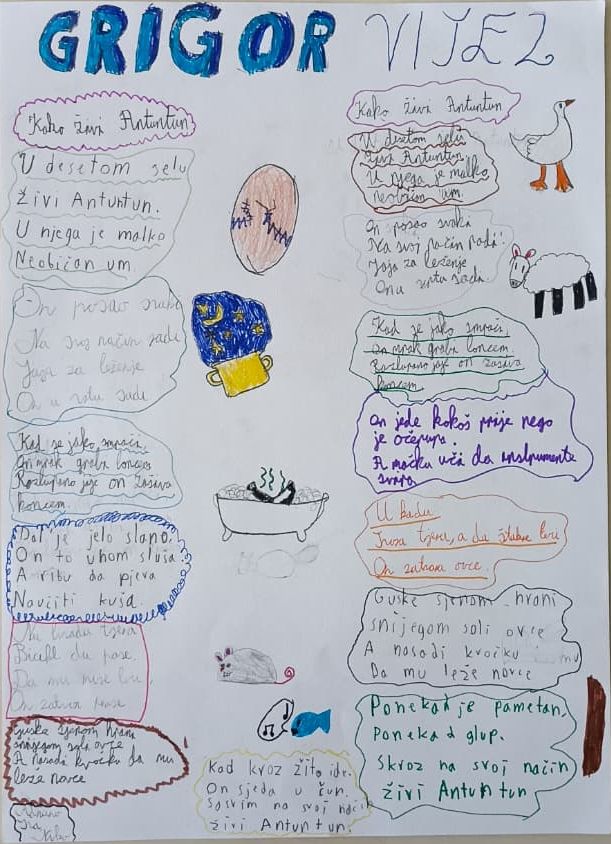 GRIGOR VITEZ
Kako živi Antuntun
U desetom selu
Živi Antuntun.
U njega je malko
Neobičan um.
On posao svaki
Na svoj način sadi
Jaja za leženje
On u vrtu sadi
Kad se jako smrači,
On mrak grabi loncem
Razlupano jaje on zašiva
koncem.
Dal je jelo slano,
On to uhom sluša.
A ribu da pjeva
Naučiti kuša.
Na livadu tjera
Bicikl da pase.
Da mu miše lovi,
On zatvori prase
Guske sjenom hrani
snijegom soli ovce
A nasadi kvočku da mu
leže novce
Kako živi Antuntun
U desetom selu
živi Antuntun
U njega je malko
neobičan um.
On posao svaki
Na svoj način radi.
Jaja za leženje
On u vrtu sada.
Kad se jako smrači,
on mrak grabi loncem.
Razlupano jaje on zašiva
koncem
On jede kokoš prije nego
je očerupa.
A mačku uči da instrumente
svira
U kadu
tjera, a da
On zatvara ovce.
Guske sjenom hrani
snijegom soli ovce
A nasadi kvočku
Da mu leže novce
Ponekad je pametan,
Ponekad glup.
Skroz na svoj način
živi Antuntun
Kad kroz žito ide.
On sjeda u čun.
Sasvim na svoj način
živi Antuntun.